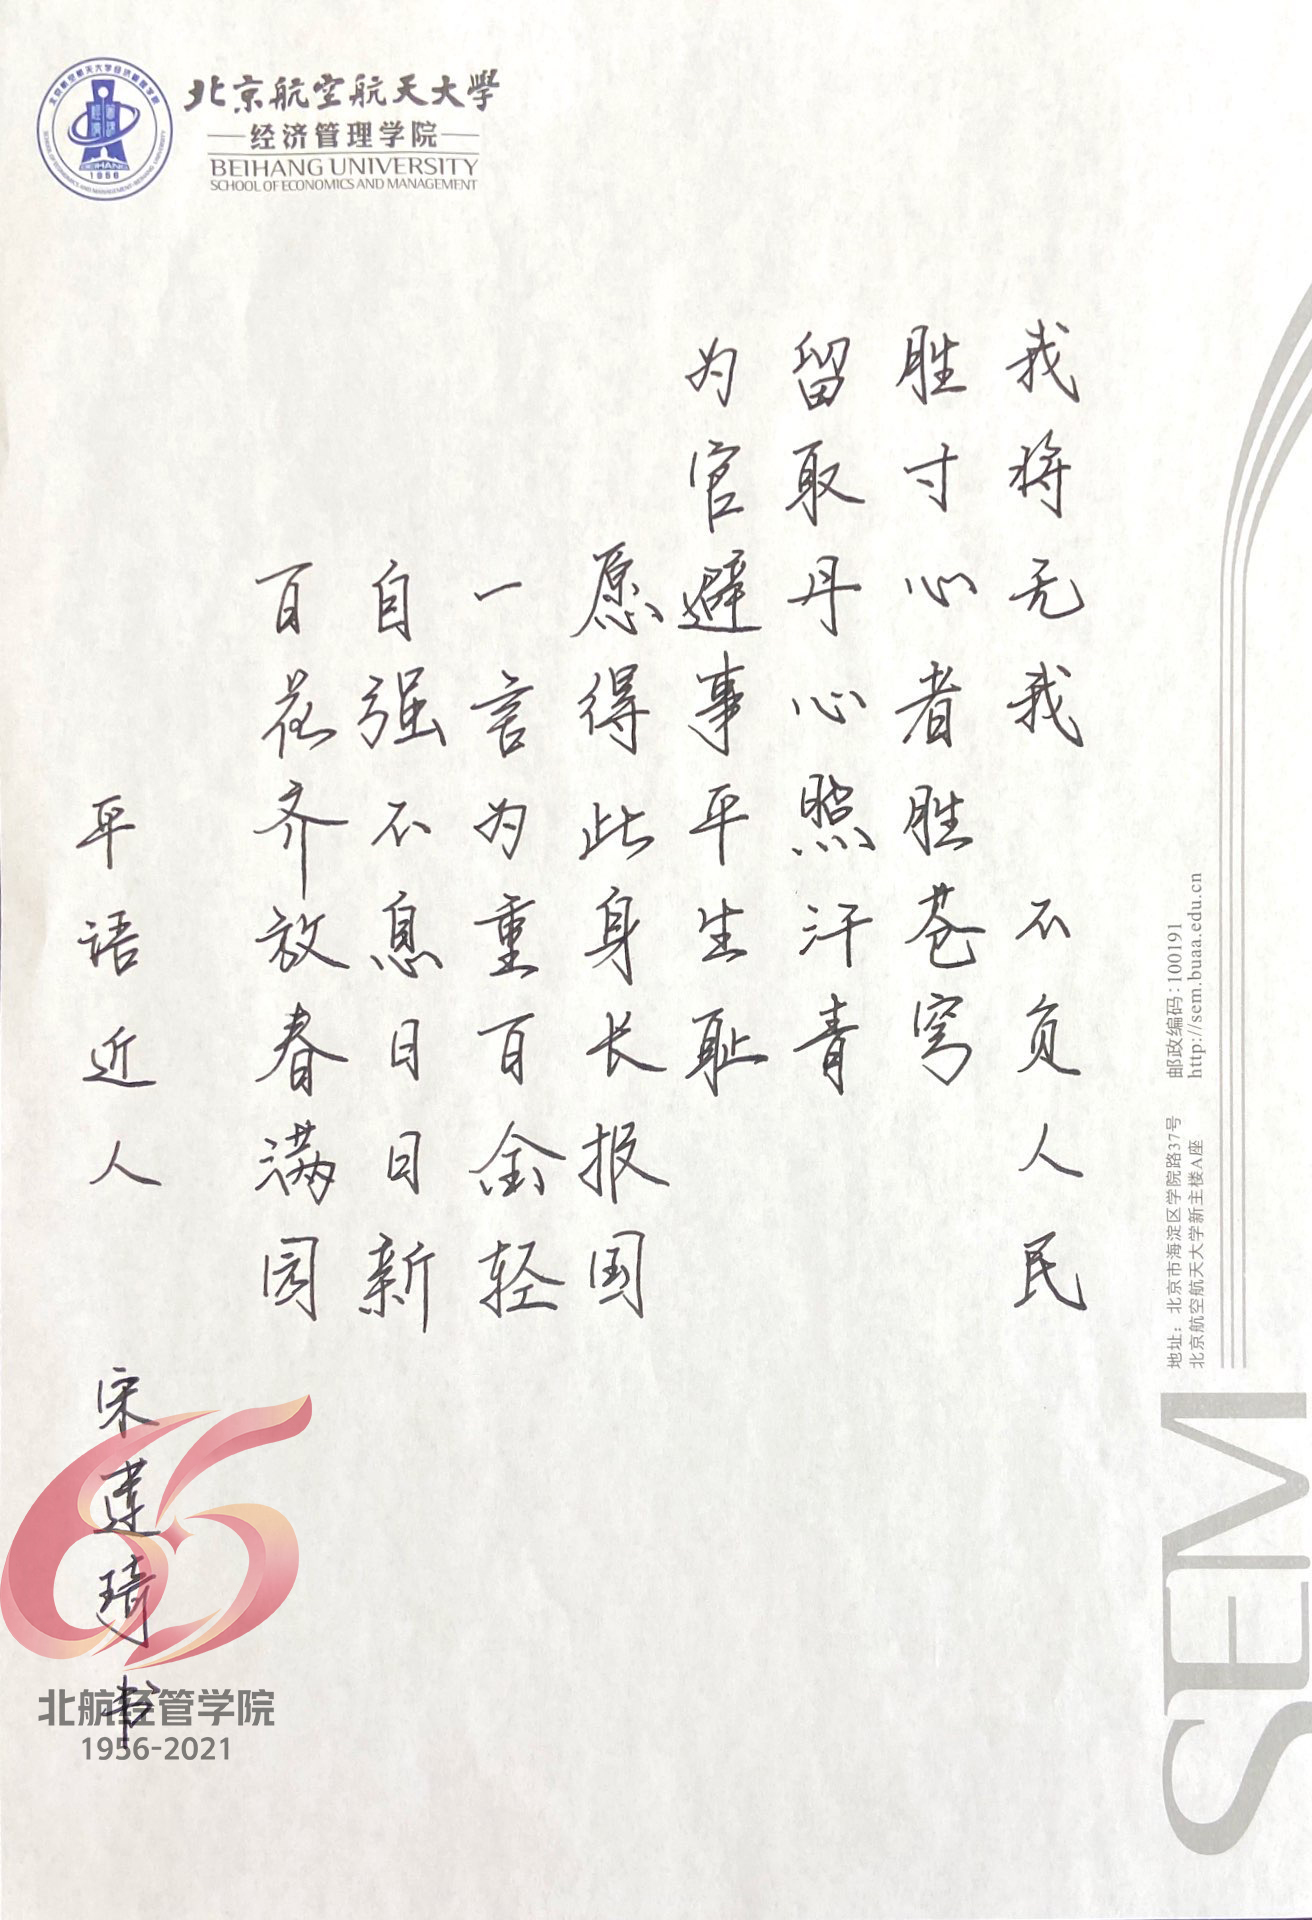 北京航空航天大學
经济管理学院
BEIHANG UNIVERSITY
SCHOOL OF ECONOMICS AND MANAGEMENT
北京航空航天大学经济管理学院
SCHOOL OF ECONOMICS AND MANAGEMENT BEIHANG UNIVERSITY
BEIHANG
1956
我将无我 不负人民
胜寸心者胜苍穹
留取丹心照汗青
为官避事平生耻
愿得此身长报国
一言为重百金轻
自强不息日日新
百花齐放春满园
平语近人 宋莲琦书
地址：北京市海淀区学院路37号 邮政编码：100191
北京航空航天大学新主楼A座 http://sem.buaa.edu.cn
SEM
65
北航经管学院
1956-2021